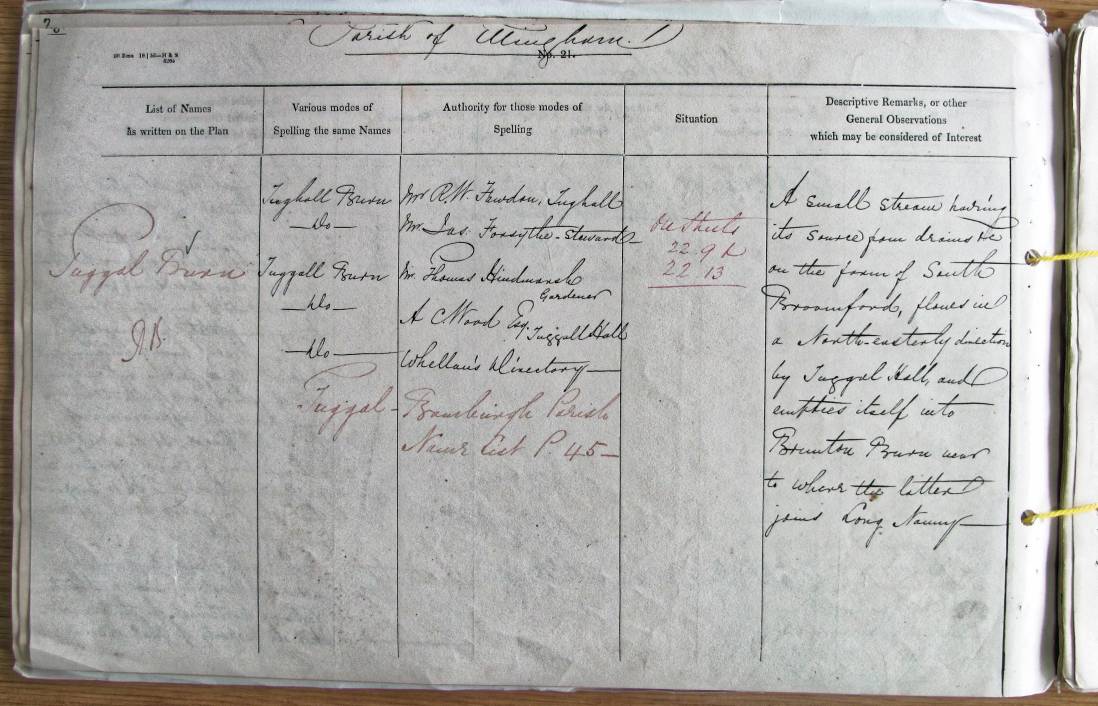 Parish of Ellingham
No. 21.
List of Names
as written on the Plan
Various modes of
Spelling the same Names
Authority for those modes of
Spelling
Situation
Descriptive Remarks, or other
General Observations
which may be considered of Interest
Tuggal Burn
Tughall Burn
—Do—
Tuggall Burn
—Do—
—Do—
Tuggal -
Mr. R.W. Fewdon, Tughall
Mr. Jas. Forsythe - Steward -
Mr. Thomas Hindmarsh
Gardener
A C Wood Esq. Tuggall Hall
Whellan's Directory —
Bamburgh Parish
Name List P. 45 —
On Sheets
22.9 &
22 13
A small stream having
its source from drains &c
on the farm of South
Broomford, flows in
a North-easterly direction
by Tuggal Hall, and
empties itself into
Brunton Burn near
to where the latter
joins Long Nanny —